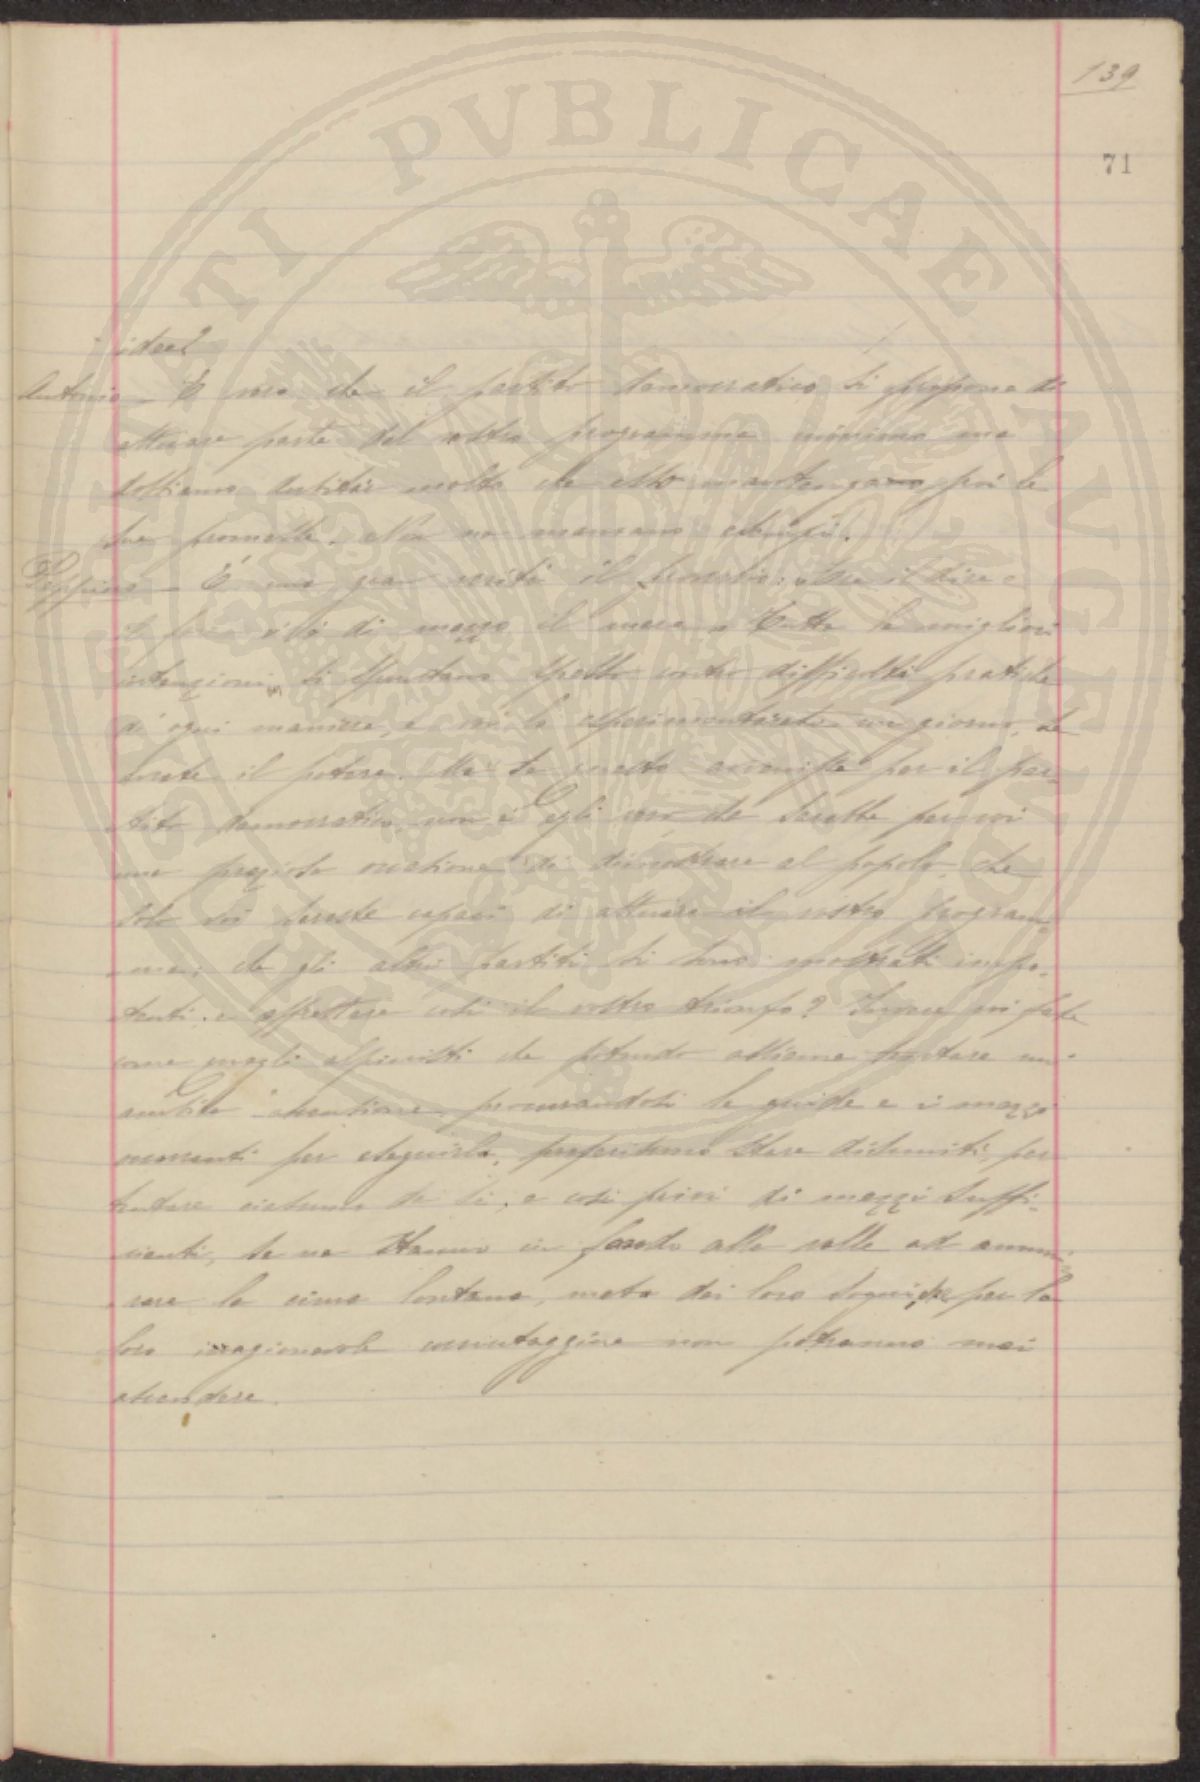 139
71
idee?
Antonio – È vero che il partito democratico si propone di
attuare parte del nostro programma minimo ma
dobbiamo dubitare molto che esso mantenga poi le
sue promesse. Non ne mancano esempi.
Peppino – È una gran verità il proverbio: "tra il dire e
il fare vi è di mezzo il mare". Tutte le migliori
intenzioni si spuntano spesso contro difficoltà pratiche
d'ogni maniera, e voi lo esperimentereste un giorno, se
aveste il potere. Ma se questo avvenisse per il par-
tito democratico, non è egli vero che sarebbe per voi
una preziosa occasione di dimostrare al popolo, che
solo voi sareste capaci di attuare il vostro program-
ma; che gli altri partiti si sono mostrati impo-
tenti e affrettare così il vostro trionfo? Invece voi fate
come quegli alpinisti che potendo assieme tentare un'
ardita ascensione, procurandosi le guide e i mezzi
occorrenti per eseguirla, preferiscono stare disuniti, per
tentare ciascuno da sé; e così privi di mezzi suffi-
cienti, se ne stanno in fondo alla valle ad ammi-
rare la cima lontana, meta dei loro sogni, che per la
loro irragionevole cocciutaggine non potranno mai
ascendere.